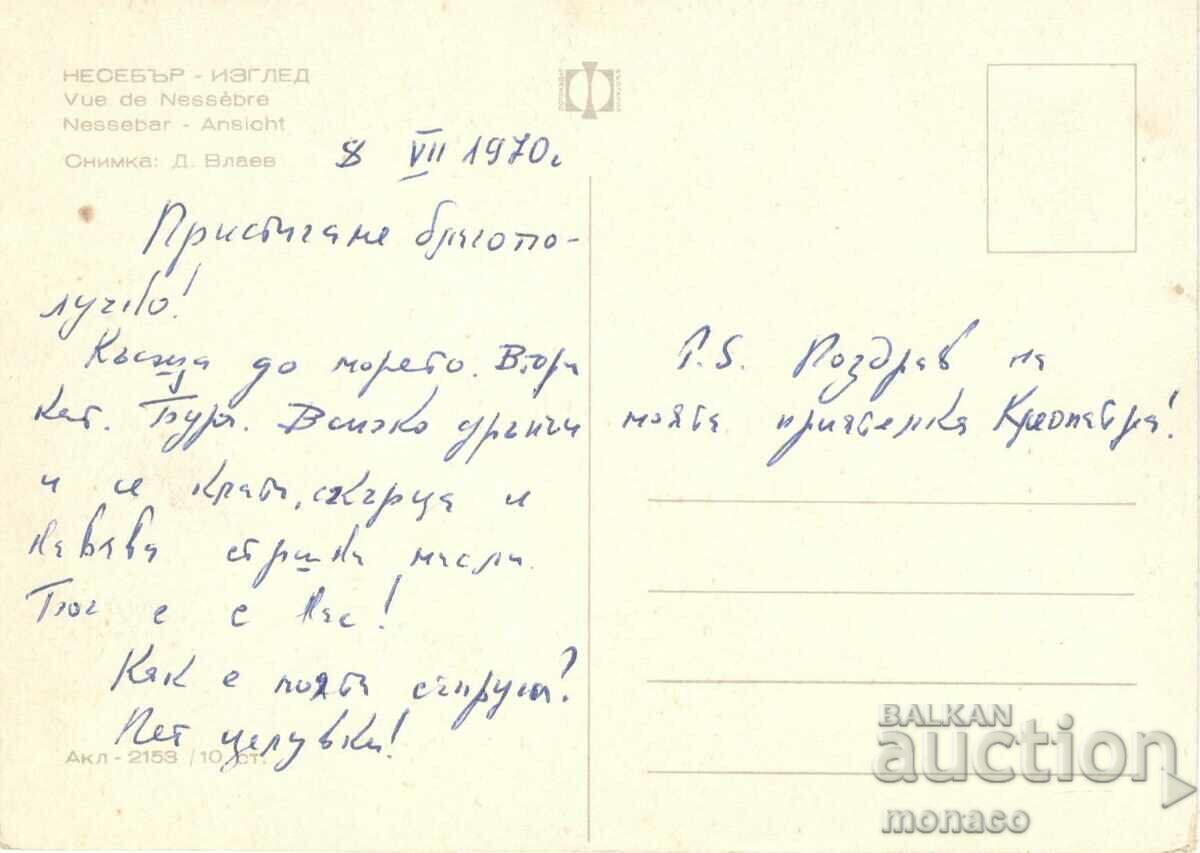 НЕСЕБЪР - ИЗГЛЕД
Vue de Nessèbre
Nessebar - Ansicht
Снимка: Д. Влаев
8 VII 1970 г
Пристигане благопо-
лучно!
Къща до морето. Втори
кат. Бура. Всичко дрънчи
и се клати, скърца и
навява страшни мисли.
Бог е с нас!
Как е моята съпруга?
Пет целувки!
Акл - 2153 / 10 ст.
P.S. Поздрав на
моята приятелка Клеопатра!
BALKAN
auction
monaco